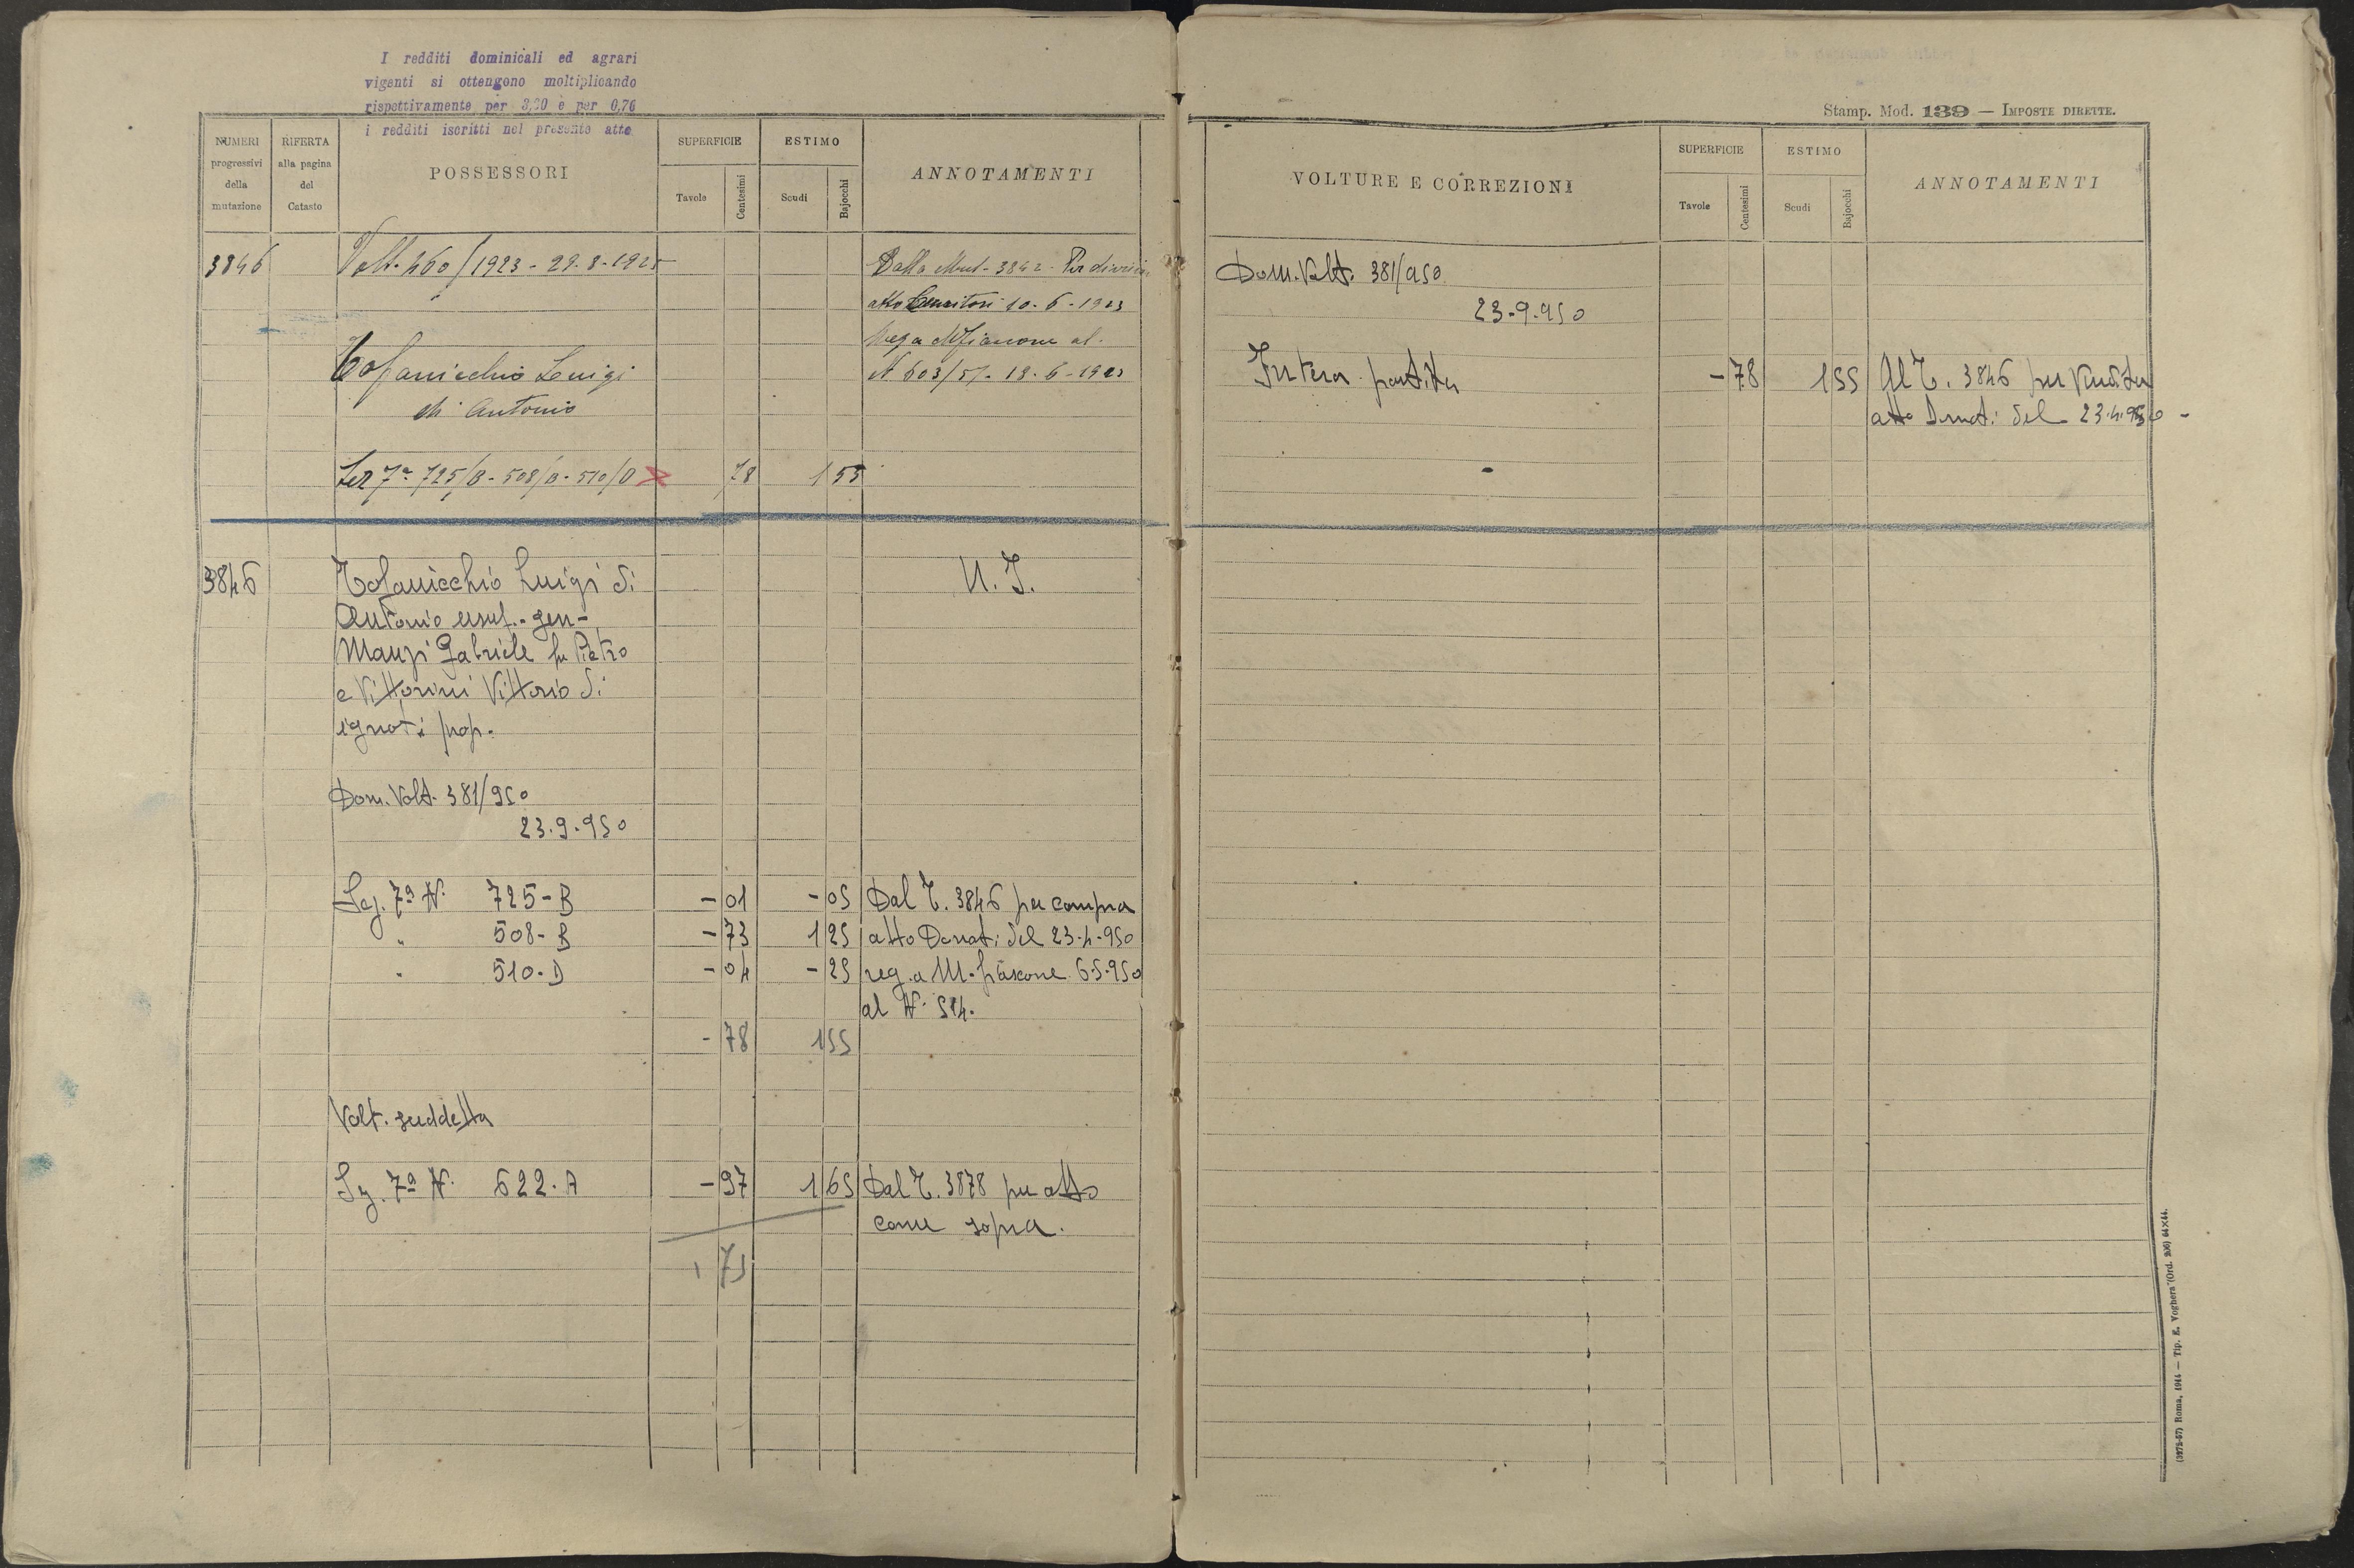 I redditi dominicali ed agrari
vigenti si ottengono moltiplicando
rispettivamente per 3,20 e per 0,76
i redditi iscritti nel presente atto
NUMERI
progressivi
della
mutazione
RIFERTA
alla pagina
del
Catasto
POSSESSORI
SUPERFICIE
Tavole
Centesimi
ESTIMO
Scudi
Bajocchi
ANNOTAMENTI
3846 Volt. 460/1923 - 29.8.1925 Dalla Mut. 3842. Per divisione
atto 10-6-1923
Reg a Mfiascone al.
Tofanicchio Luigi N 603/57- 18-6-1923
di Antonio
Sez 7a 725/B - 508/B - 510/D 78 1 55
3846 Tofanicchio Luigi di U. I.
Antonio usuf. - gen -
Manzi Gabriele fu Pietro
e Vittorini Vittorio di
ignoti prop.
Dom. Volt. 381/950
23.9.950
Sez. 7a N. 725-B - 01 - 05 Dal T. 3846 per compra
" 508-B - 73 1 25 atto Donati del 23-4-950
" 510-D - 04 - 25 reg. a M. fiascone 6-5-950
al N. 514.
- 78 1 55
Volt. suddetta
Sez. 7a N. 622. A - 97 1 65 Dal T. 3878 per atto
come sopra.
1 75
Stamp. Mod. 139 — IMPOSTE DIRETTE.
VOLTURE E CORREZIONI
SUPERFICIE
Tavole
Centesimi
ESTIMO
Scudi
Bajocchi
ANNOTAMENTI
Dom. Volt. 381/950
23.9.950
Intera partita - 78 1 55 Al T. 3846 per vendita
atto Donati del 23.4.950 -
(3975-57) Roma, 1914 — Tip. E. Voghera (Ord. 206) 64×44.